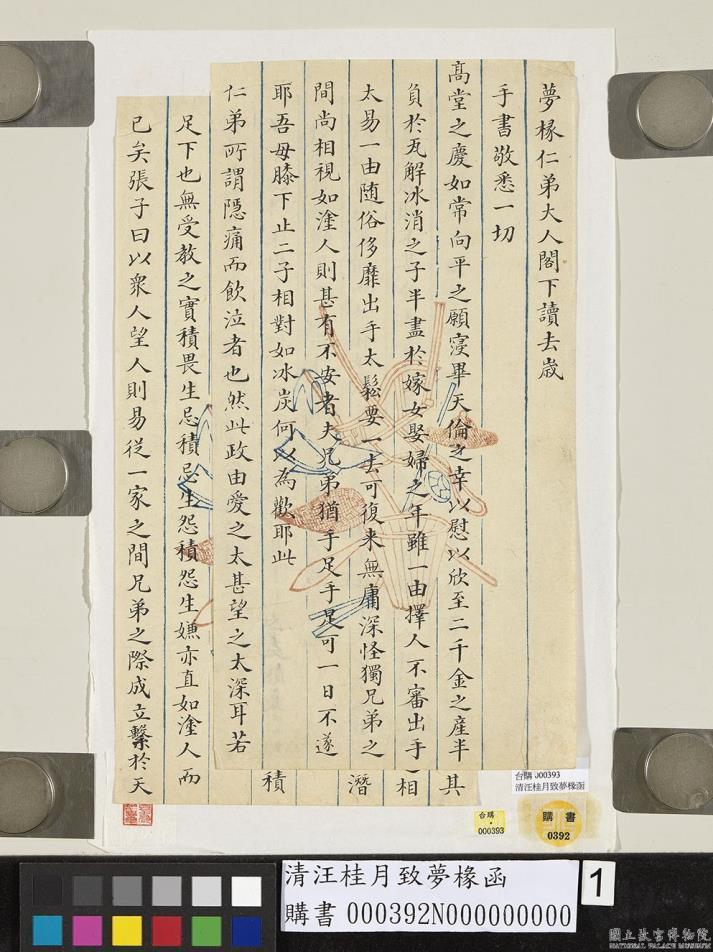 夢椽仁弟大人閣下讀去歲
手書敬悉一切
高堂之慶如常向平之願寖畢天倫之幸以慰以欣至二千金之產半
負於瓦解冰消之子半盡於嫁女娶婦之年雖一由擇人不審出手
太易一由随俗侈靡出手太鬆要一去可復来無庸深怪獨兄弟之
間尚相視如塗人則甚有不安者夫兄弟猶手足手足可一日不遂
耶吾母膝下止二子相對如冰炭何以為歡耶此
仁弟所謂隱痛而飲泣者也然此政由愛之太甚望之太深耳若
足下也無受教之實積畏生忌積忌生怨積怨生嫌亦直如塗人而
已矣張子曰以衆人望人則易從一家之間兄弟之際成立繫於天
其
相
潛
積
台購 000393
清汪桂月致夢椽函
台購
000393
購書
0392
清汪桂月致夢椽函
購書 000392N000000000
1
國立故宮博物院
NATIONAL PALACE MUSEUM